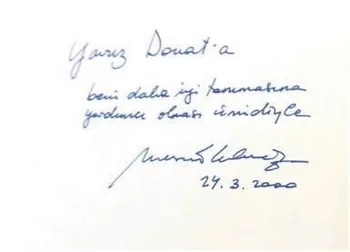 Yavuz Donat'a
beni daha iyi tanımasına
yardımcı olması ümidiyle
24.3.2000